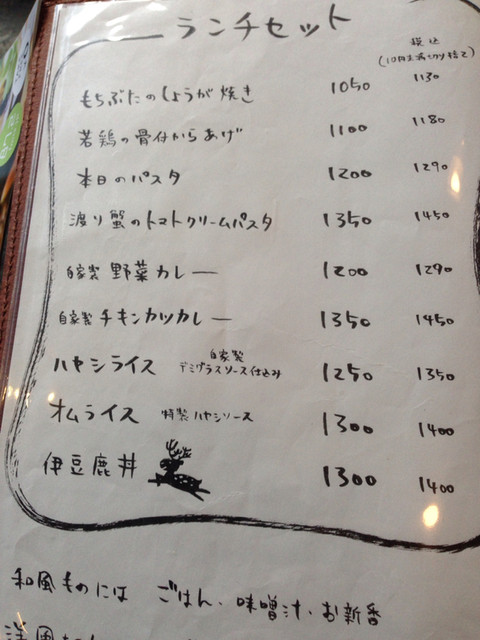 ランチセット
税込
(10円未満切り捨て)
もちぶたのしょうが焼き 1050 1130
若鶏の骨付からあげ 1100 1180
本日のパスタ 1200 1290
渡り蟹のトマトクリームパスタ 1350 1450
自家製 野菜カレー 1200 1290
自家製 チキンカツカレー 1350 1450
ハヤシライス 自家製 デミグラスソース仕込み 1250 1350
オムライス 特製ハヤシソース 1300 1400
伊豆鹿丼 1300 1400
和風ものには ごはん、味噌汁、お新香